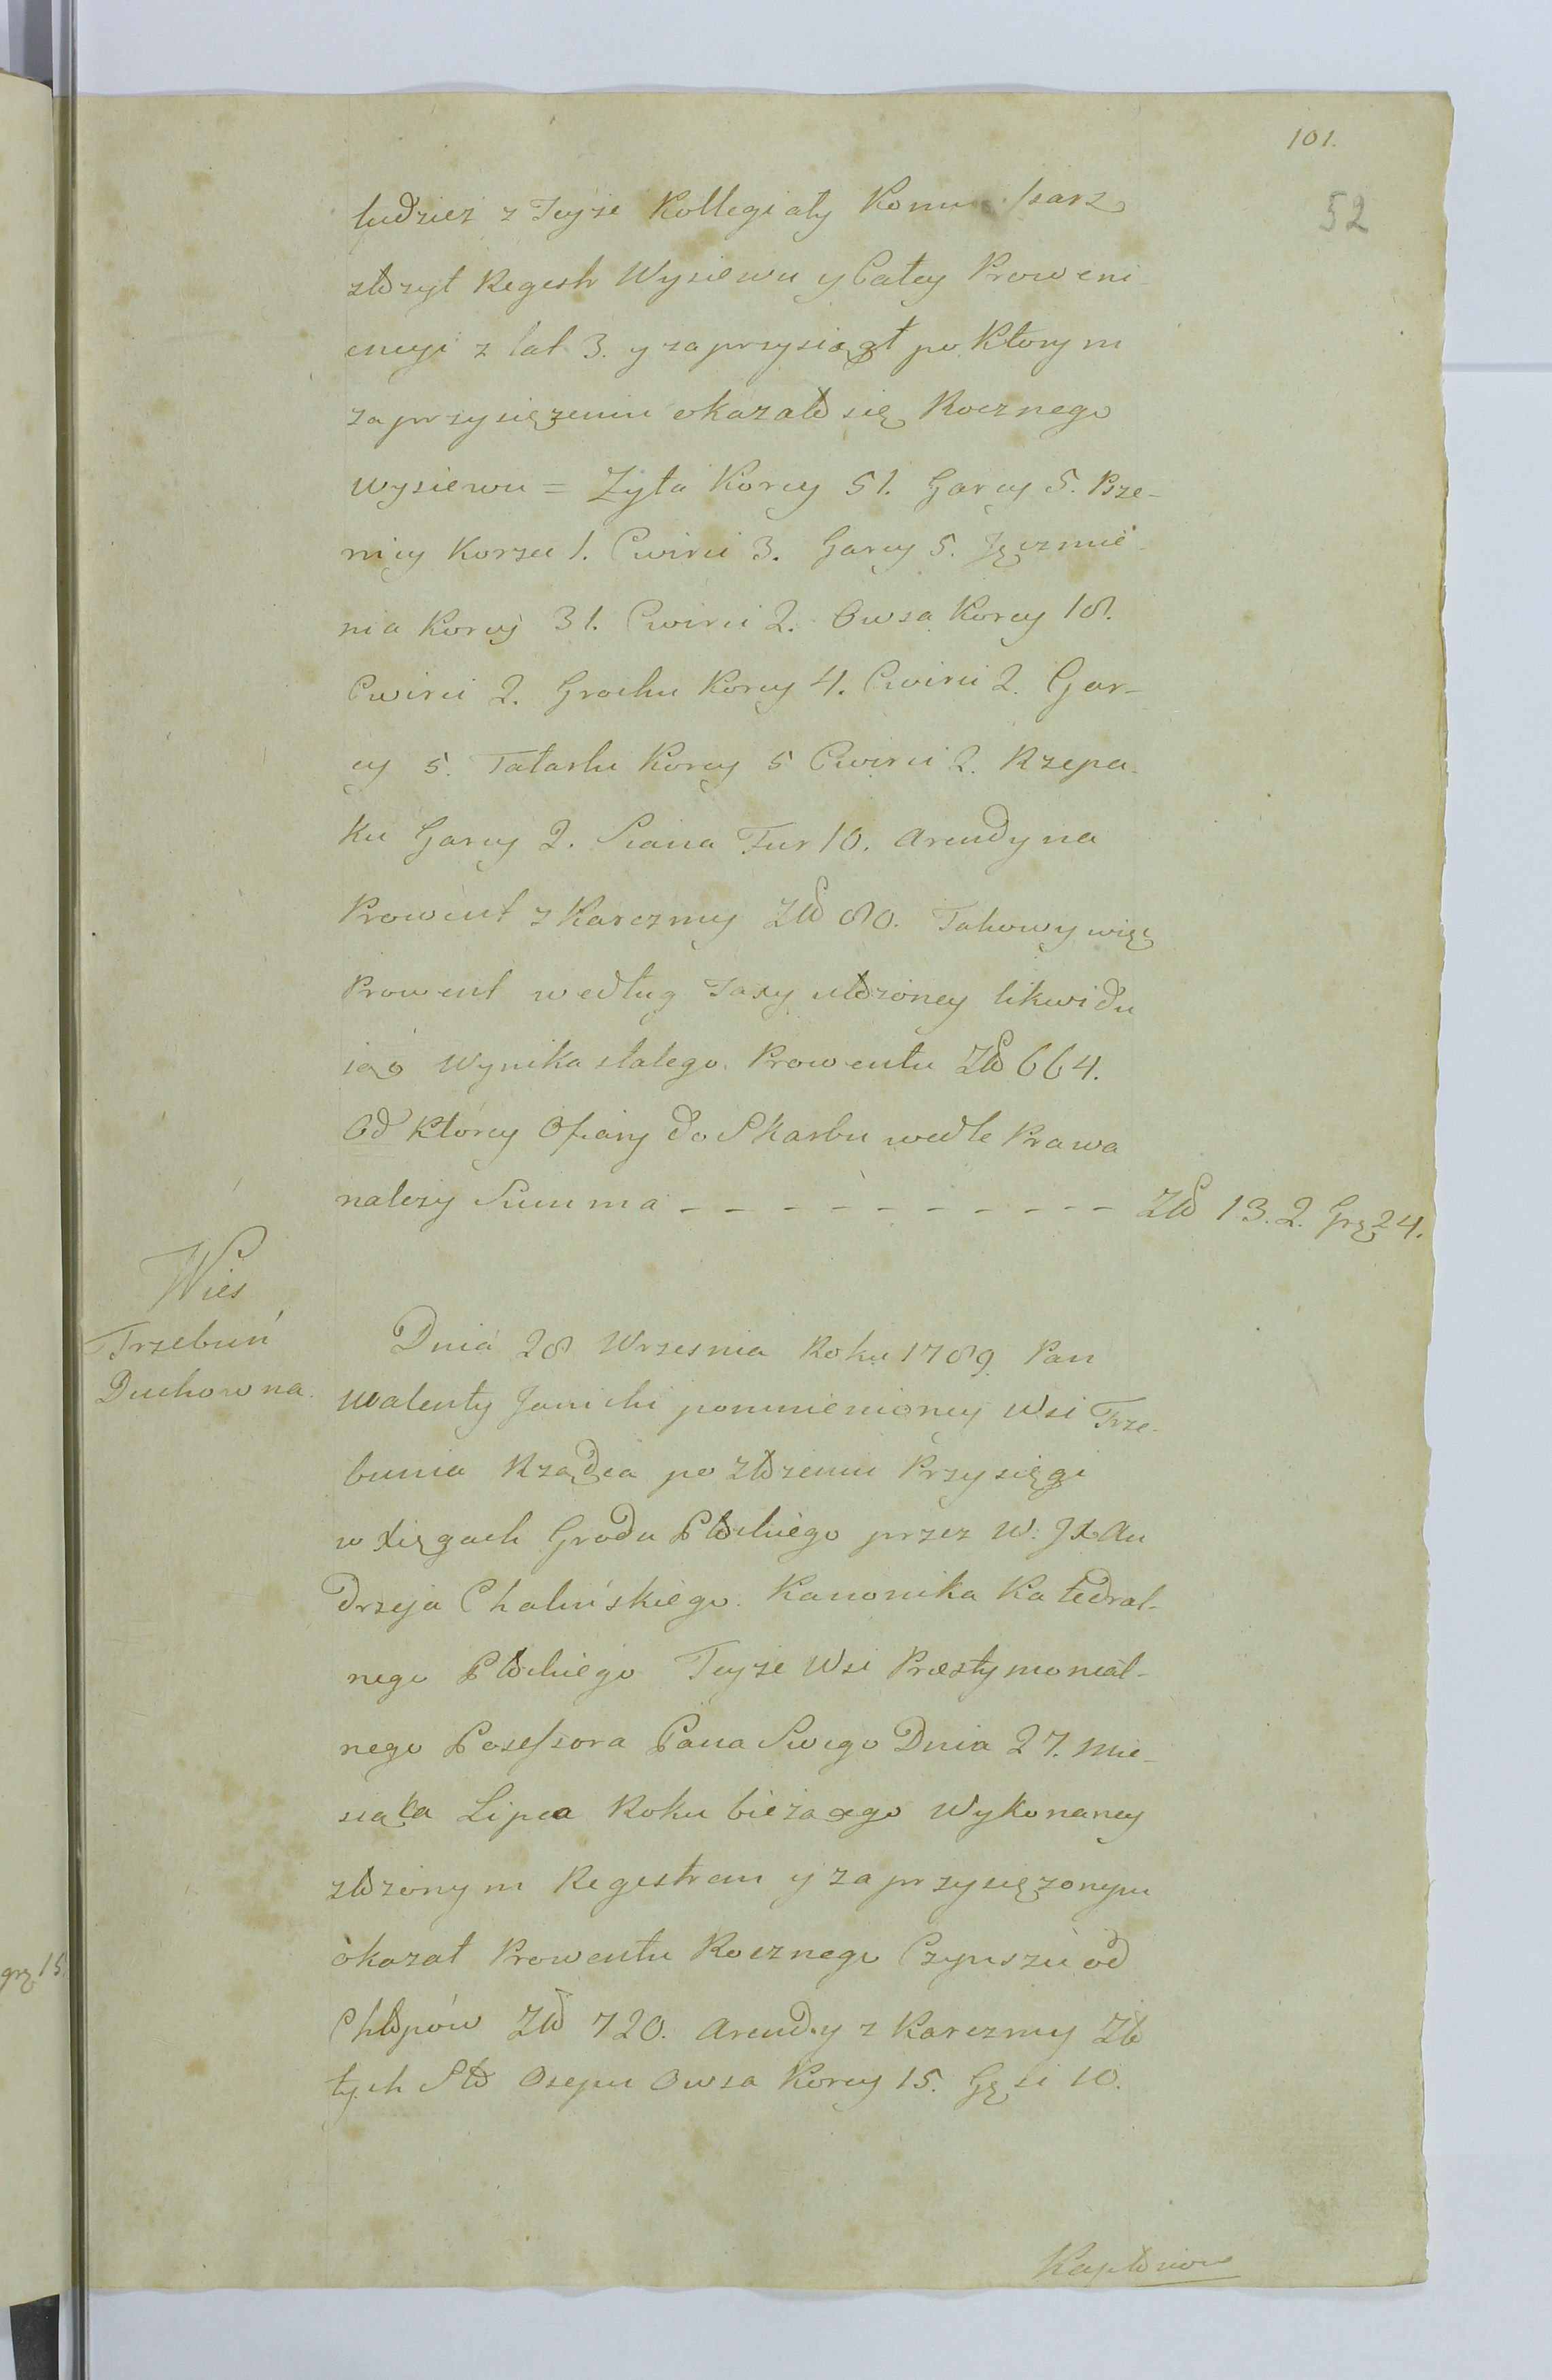 101.
52
tudziez z Teyże Kollegiaty Kommissarz
złożył Regestr Wysiewu y Całey Proweni-
encyi z lat 3. y zaprzysiągł po którym
zaprzysięzeniu okazało się Rocznego
wysiewu = Zyta Korcy 51. Garcy 5. Psze-
nicy Korzec 1. Cwirci 3. Garcy 5. Jęczmie-
nia Korcy 31. Cwirci 2. Owsa Korcy 18.
Cwirci 2. Grochu Korcy 4. Cwirci 2. Gar-
cy 5. Tatarki Korcy 5 Cwirci 2. Rzepa-
ku Garcy 2. Siana Fur 10. Arendy na
Prowent z Karczmy Zło 80. Takowy więc
Prowent według Taxy ułożoney likwidu
iąc Wynika stałego Prowentu Zło 664.
Od którey Ofiary do Skarbu wedle Prawa
nalezy Summa - - - - - - - - - - - Zło 132. Grz 24.
Wies
Trzebuń
Duchowna.
Dnia 28 Wrzesnia Roku 1789 Pan
Walenty Janicki pomienioney Wsi Trze-
bunia Rządca po złożeniu Przysięgi
w xięgach Grodu Płockiego przez W. JX An
drzeja Chalińskiego Kanonika Katedral-
nego Płockiego Teyże Wsi Præstymonial-
nego Posessora Pana Swego Dnia 27. Mie-
siąca Lipca Roku bieżącego Wykonaney
złożonym Regestrem y zaprzysięzonym
okazał Prowentu Rocznego Czynszu od
Chłopów Zło 720. Arendy z Karczmy Zło
tych Sto Osepu Owsa Korcy 15. Gęsi 10.
Kapłonow
grz 15